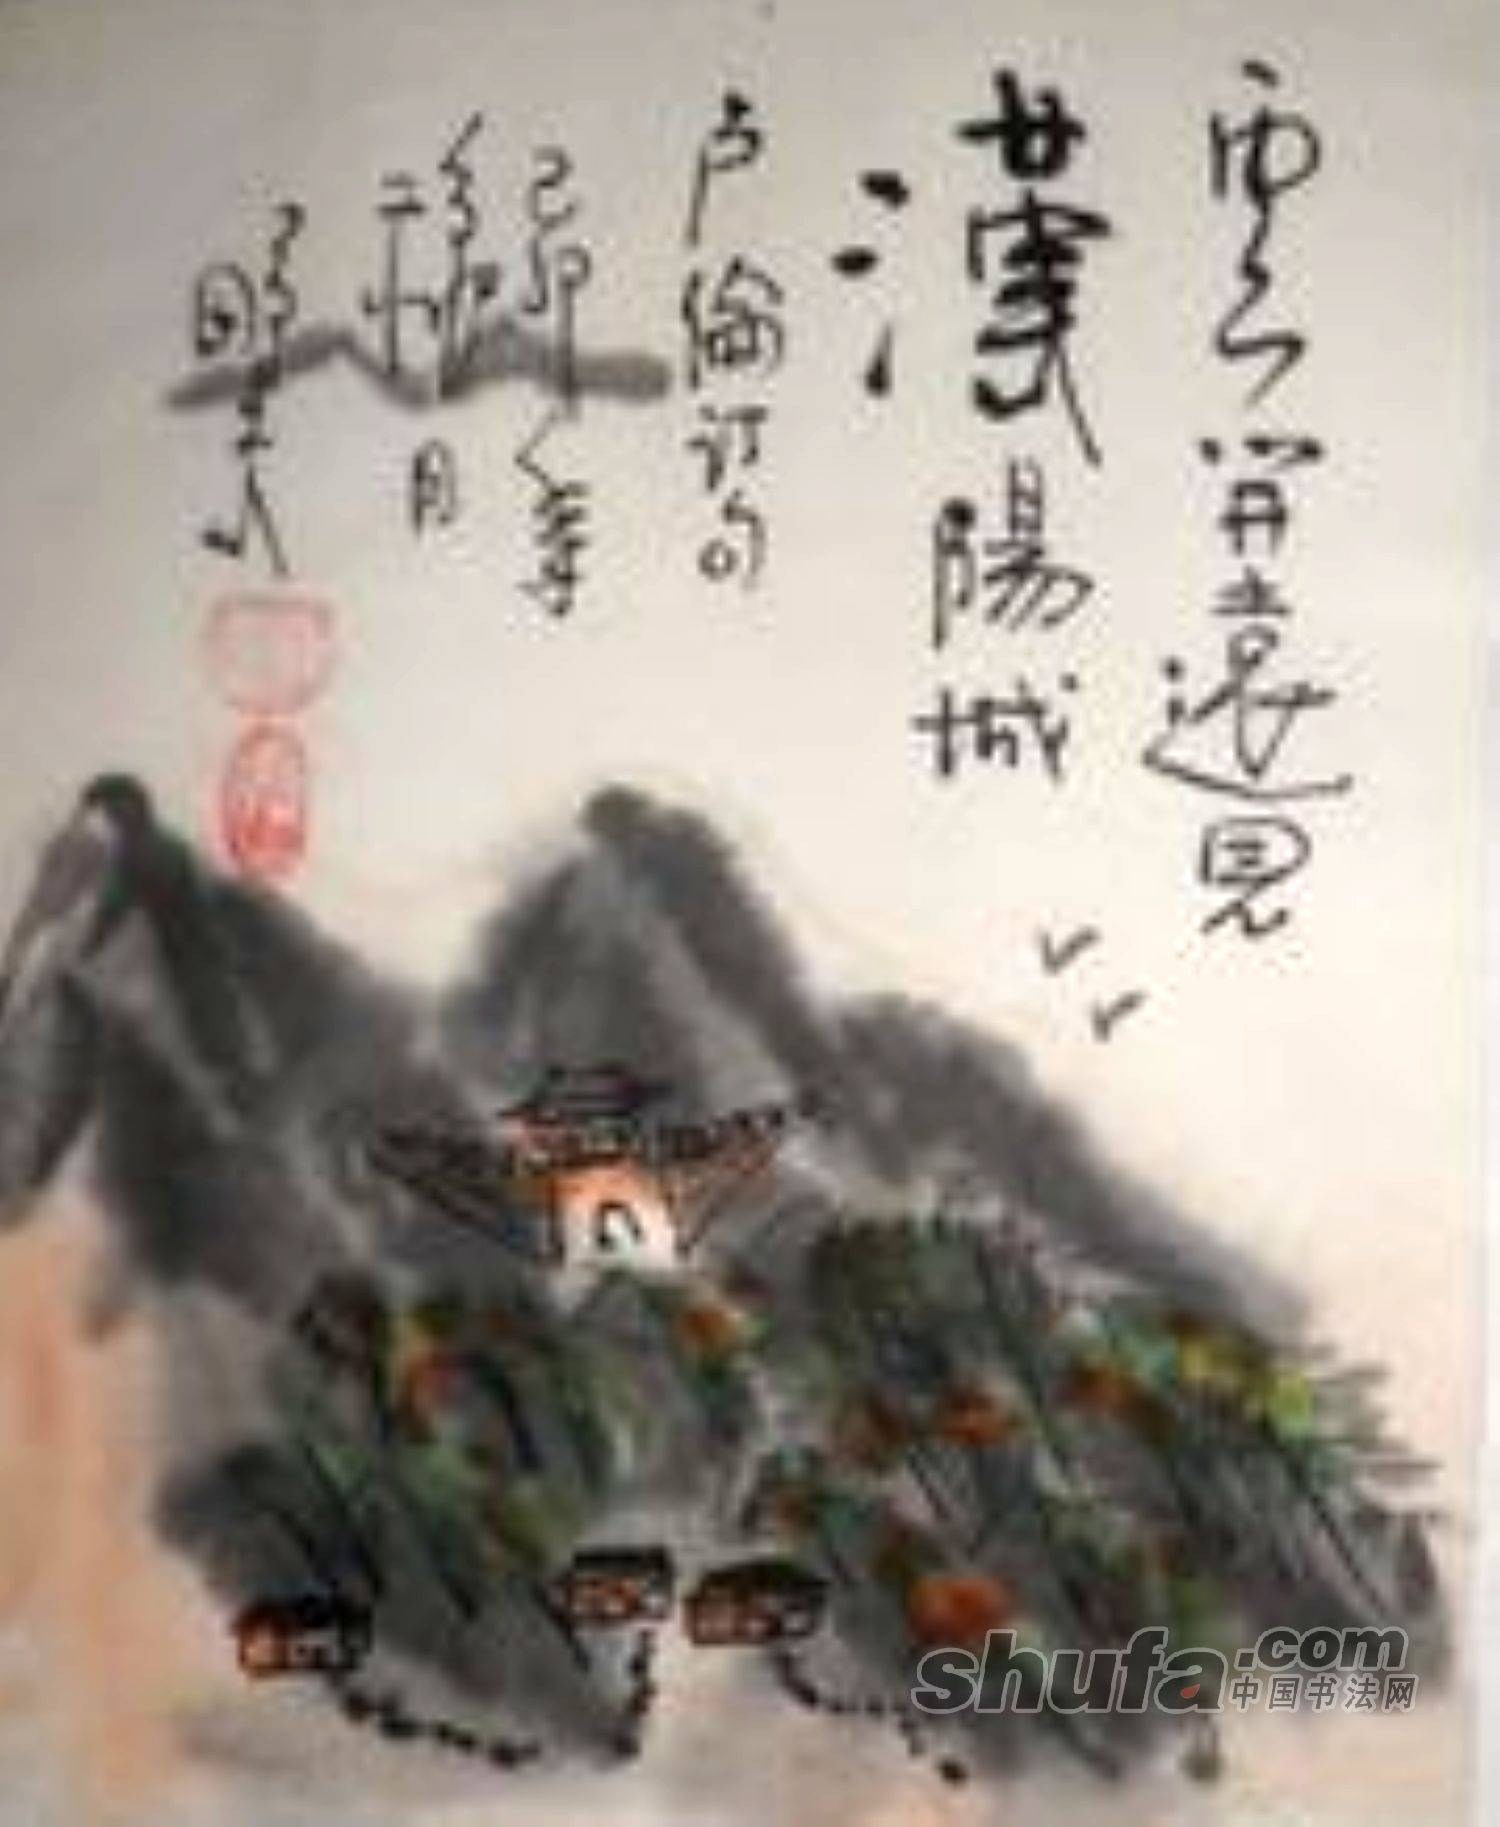 雲开遠見
漢陽城
卢倫订句
己卯年
二月
shufa.com
中国书法网